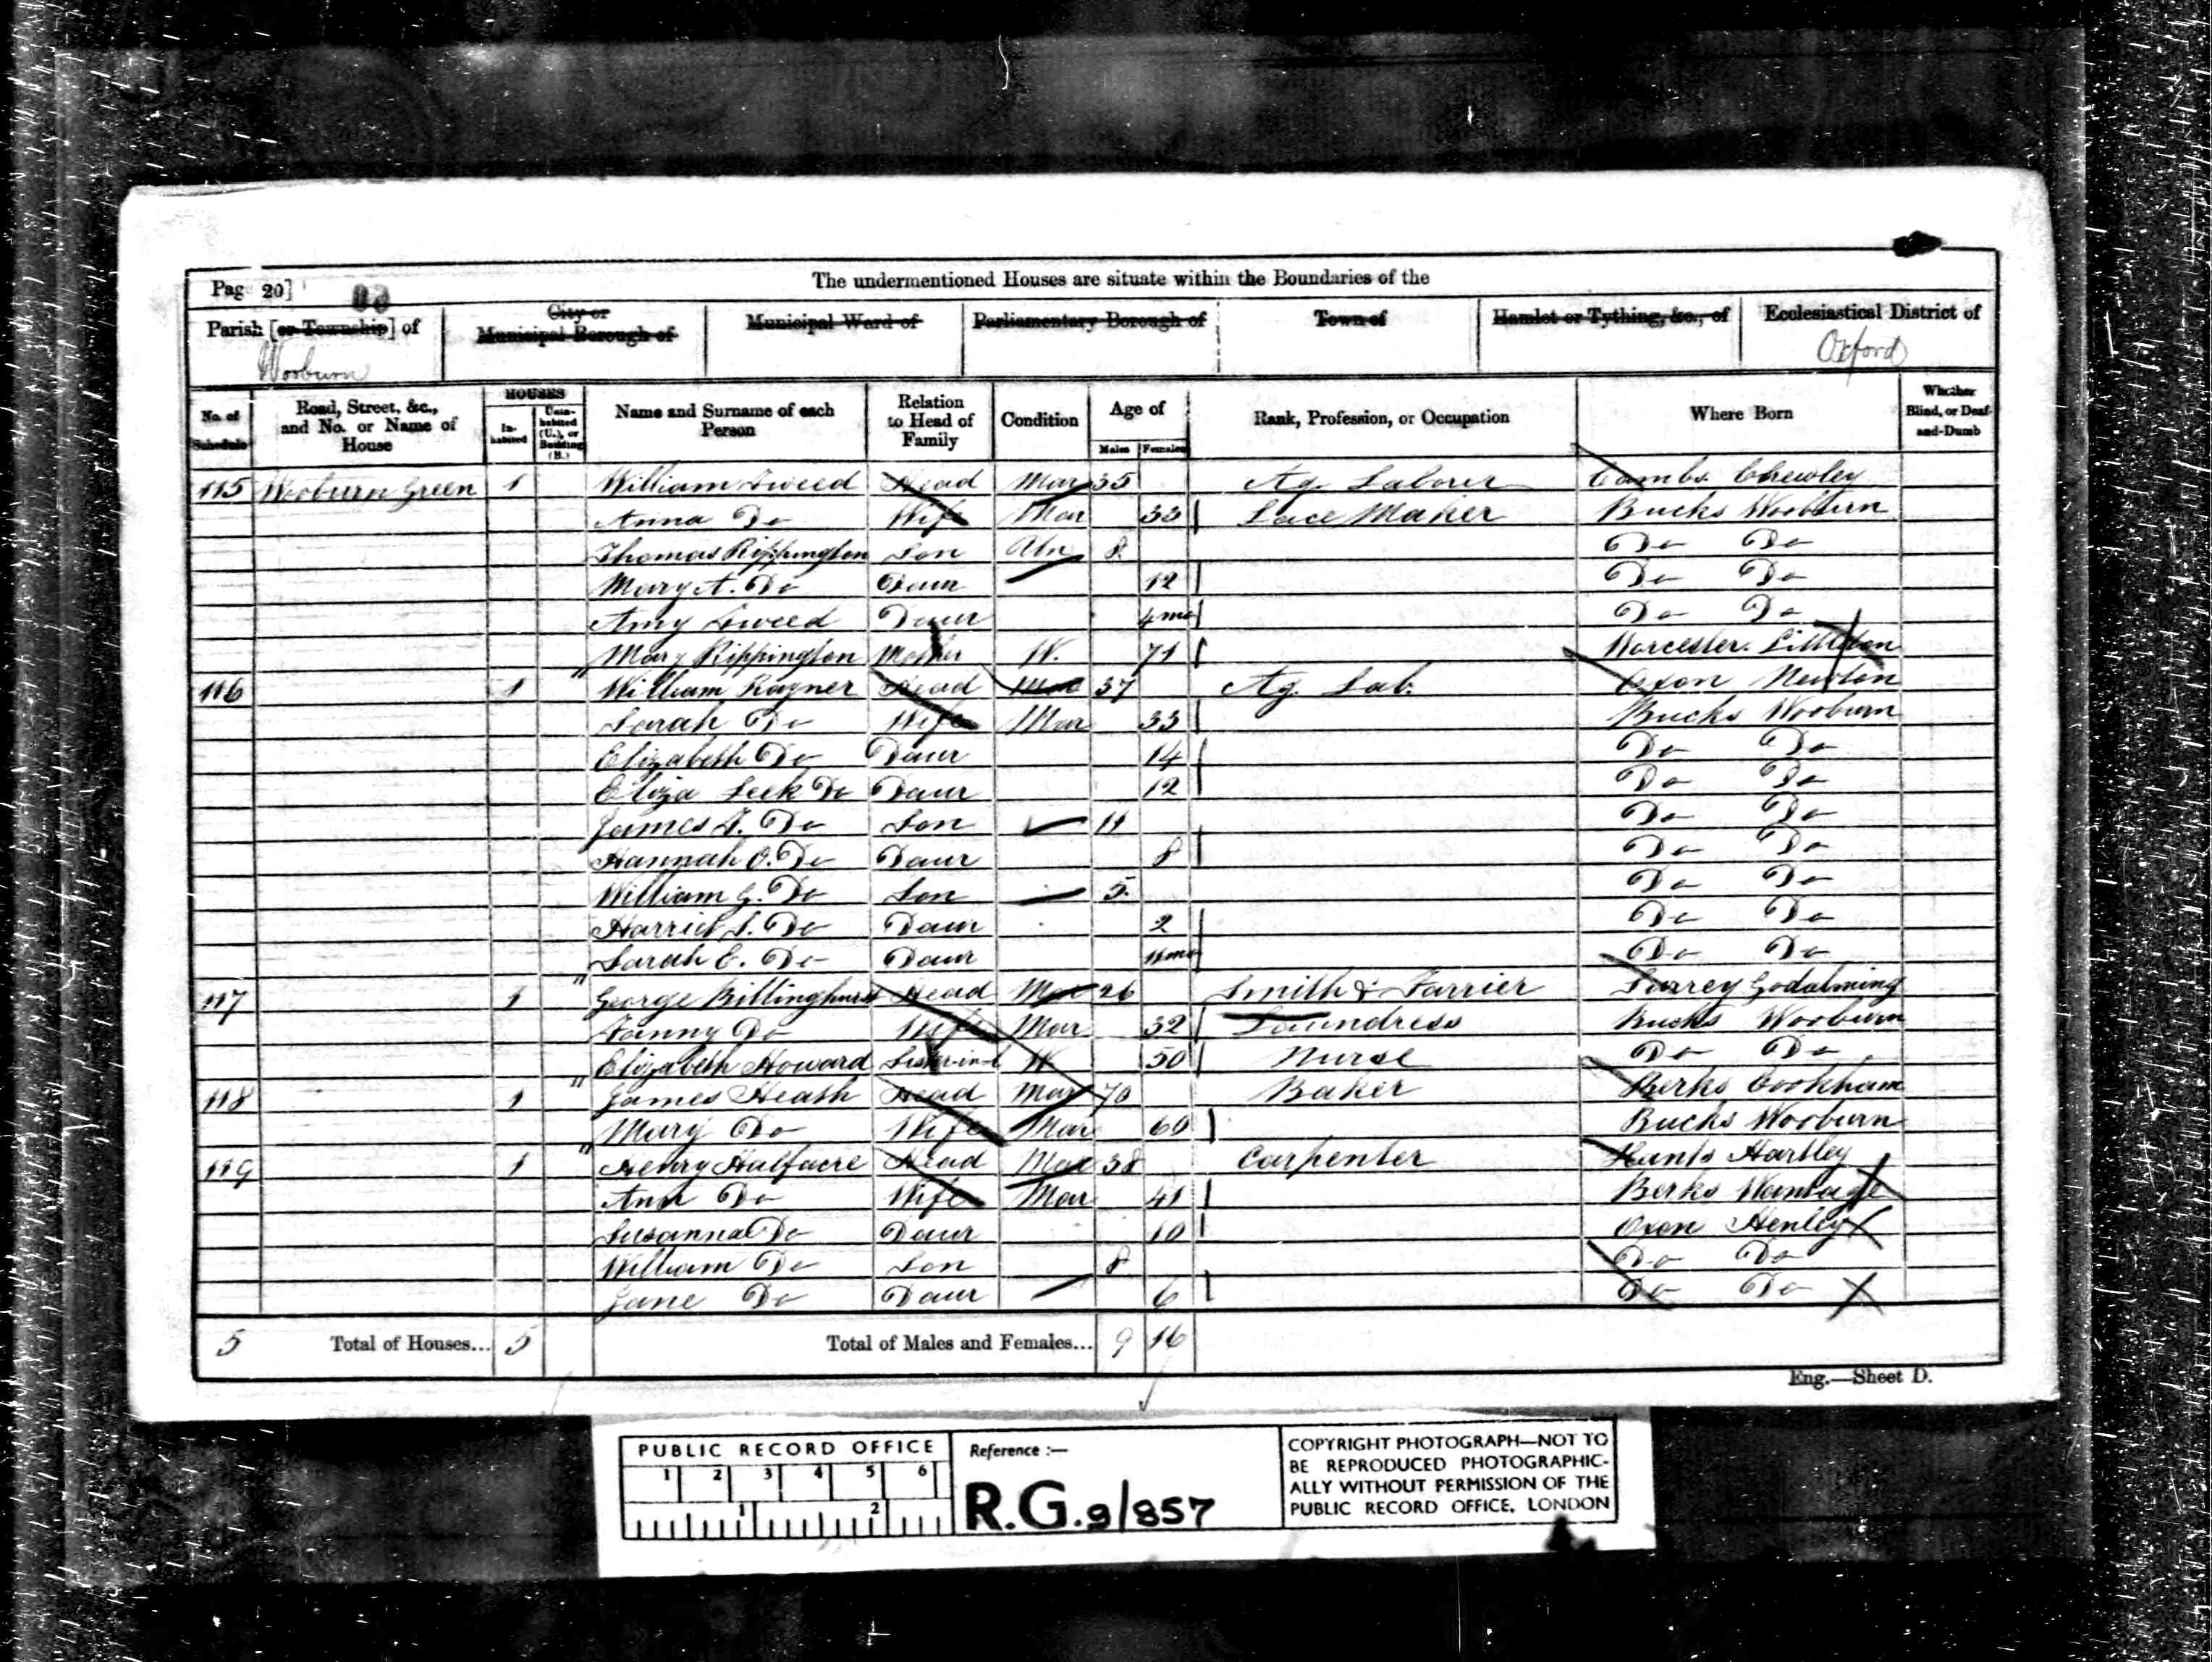 Pag 20] The undermentioned Houses are situate within the Boundaries of the
Parish [or Township] of City or Municipal Borough of Municipal Ward of Parliamentary Borough of Town of Hamlet or Tything, &c., of Ecclesiastical District of
Wooburn Oxford
No. of Schedule Road, Street, &c., and No. or Name of House HOUSES In-habited Unin-habited (U.), or Building (B.) Name and Surname of each Person Relation to Head of Family Condition Age of Males Females Rank, Profession, or Occupation Where Born Whether Blind, or Deaf-and-Dumb
115 Wooburn Green 1 William Tweed Head Mar 35 Ag. Labour Cambs Chewley
Anna Do Wife Mar 33 Lace Maker Bucks Wooburn
Thomas Rippington Son Un 8 Do Do
Mary A. Do Daur 12 Do Do
Amy Tweed Daur 4mo Do Do
Mary Rippington Mother W. 71 Worcester.
116 1 William Rayner Head Mar 37 Ag. Lab. Oxon Newton
Sarah Do Wife Mar 33 Bucks Wooburn
Elizabeth Do Daur 14 Do Do
Eliza Leek Do Daur 12 Do Do
James T. Do Son 11 Do Do
Hannah O. Do Daur 8 Do Do
William G. Do Son 5 Do Do
Harriet S. Do Daur 2 Do Do
Sarah E. Do Daur 11mo Do Do
117 1 George Billinghurst Head Mar 26 Smith & Farrier Surrey Godalming
Fanny Do Wife Mar 32 Laundress Bucks Wooburn
Elizabeth Howard Sister-in-l W 50 Nurse Do Do
118 1 James Heath Head Mar 70 Baker Berks Cookham
Mary Do Wife Mar 60 Bucks Wooburn
119 1 Henry Halfacre Head Mar 38 Carpenter Hants Hartley
Ann Do Wife Mar 41 Berks Wantage
Susanna Do Daur 10 Oxon Henley
William Do Son 8 Do Do
Jane Do Daur 6 Do Do
5 Total of Houses... 5 Total of Males and Females... 9 16
Eng.—Sheet D.
PUBLIC RECORD OFFICE
1 2 3 4 5 6
1 2
Reference :—
R.G.9/857
COPYRIGHT PHOTOGRAPH—NOT TO
BE REPRODUCED PHOTOGRAPHIC-
ALLY WITHOUT PERMISSION OF THE
PUBLIC RECORD OFFICE, LONDON